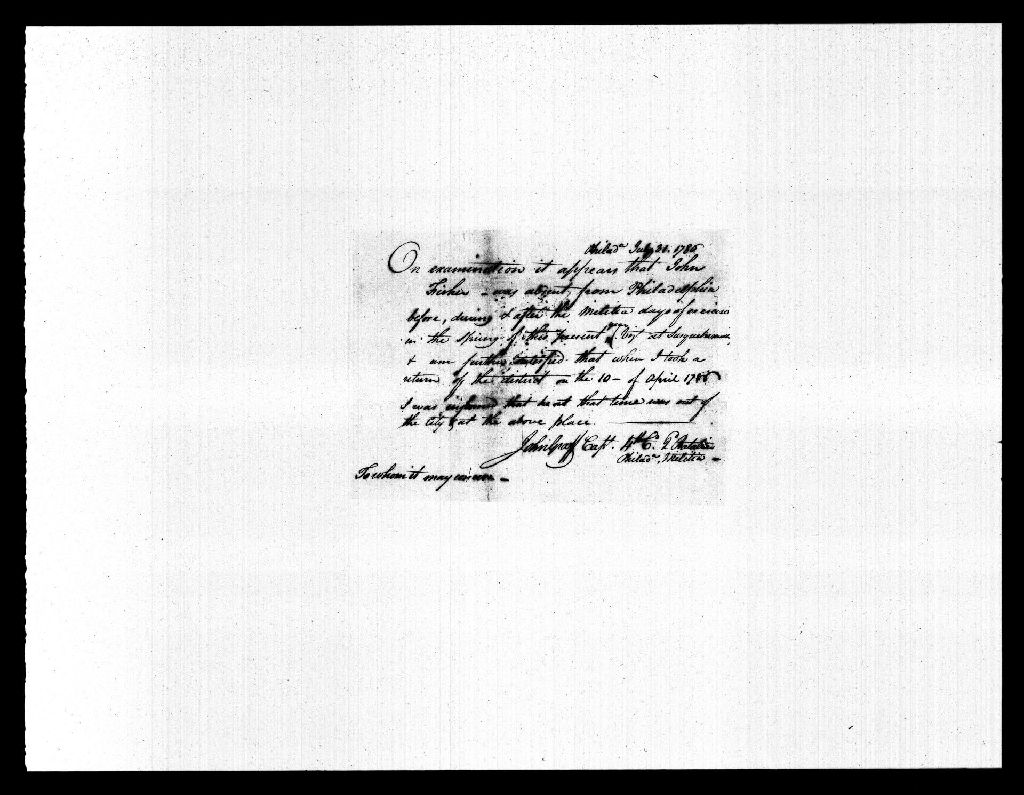 Philad.ª July 20. 1786
On examination it appears that John
Fisher - was absent, from Philadelphia
before, during & after the Militia days of exercise
in the Spring of this present at Susquehanna,
& am further that when I took a
return of the district on the 10 - of April 1786
I was informed that he at that time was out of
the City & at the above place.
John Graff Capt. 4th C.º
Philad.ª Militia -
To whom it may concern -